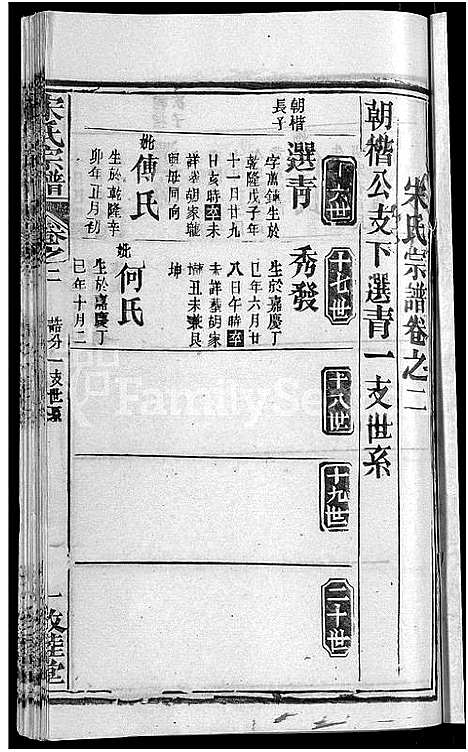 朱氏宗譜卷之二
朝楷公支下選青一支世系
十六世
十七世
十八世
十九世
二十世
朝楷
長子
選青
字萬鎰生於
乾隆戊子年
十一月廿九
日亥時卒未
詳葬胡家壠
與母同向
妣傅氏
生於乾隆辛
卯年正月初
秀發
生於嘉慶丁
巳年六月廿
八日午時卒
未詳葬胡家
壠丑未兼艮
坤
妣何氏
生於嘉慶丁
巳年十月二
朱氏宗譜
卷之二
一支世系
一
FamilySe